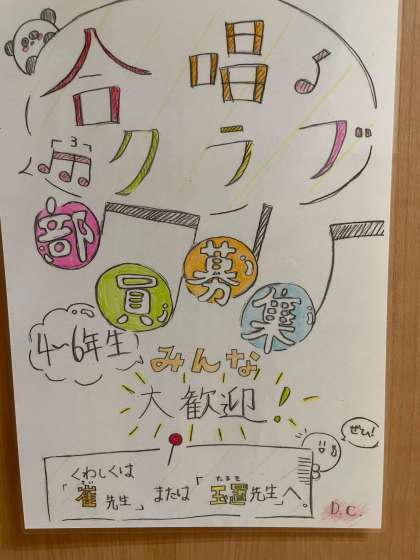 合唱
3
クラブ
部員募集
4〜6年生
みんな
大歓迎!
ぜひ!
くわしくは
たまき
「崔先生」または「玉置先生」へ。
D.C